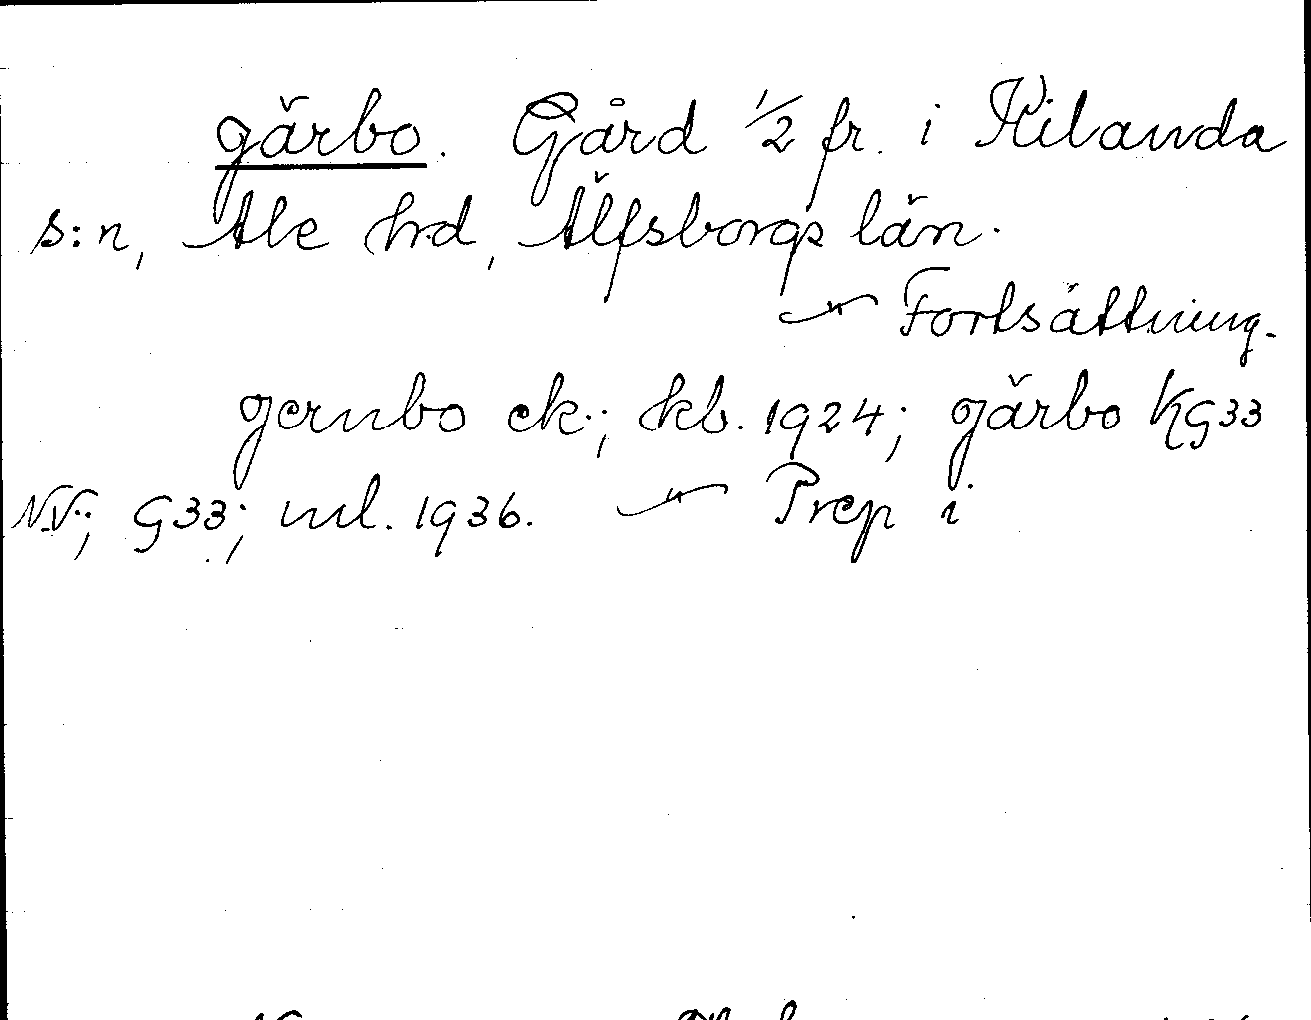 gärbo. Gård 1/2 fr. i Kilanda
s:n, Ale hrd, Älfsborgs län.
Fortsättning.
gernbo ek.; kb. 1924; gärbo KG33
NV.; G33; ml. 1936. Prep i